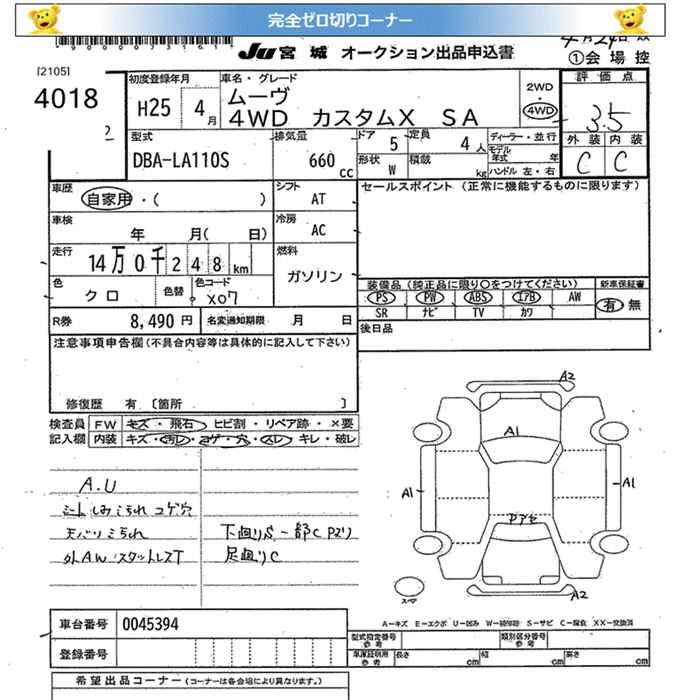 完全ゼロ切りコーナー
JU 宮城 オークション出品申込書
①会場控
[2105]
4018
初度登録年月
H25 4月
車名・グレード
ムーヴ
4WD カスタムX SA
2WD
・
4WD
評価点
3.5
外装 内装
C C
型式
DBA-LA110S
排気量
660 cc
ドア 5
定員 4人
ディーラー・並行
モデル年式 年
形状 W
積載 kg
ハンドル 左・右
車歴
自家用・( )
シフト
AT
セールスポイント (正常に機能するものに限ります)
車検
年 月( 日)
冷房
AC
走行
14万0千248km
燃料
ガソリン
色
クロ
色替
色コード
X07
装備品 (純正品に限り○をつけてください)
新車保証書
PS PW ABS エアB AW
有・無
SR ナビ TV カワ
R券 8,490円
名変通知期限 月 日
後日品
注意事項申告欄(不具合内容等は具体的に記入して下さい)
修復歴 有 [箇所 ]
検査員 FW キズ・飛石 ヒビ割・リペア跡・×要
記入欄 内装 キズ・汚レ・コゲ・穴・スレ・キレ・破レ
A2
A1
A1
A1
A2
A.U
シートしみ よごれ コゲ穴
天バリよごれ
外AW スタットレスT
下廻りS 一部C Pヌリ
足廻りC
車台番号 0045394
登録番号
A-キズ E-エクボ U-凹み W-補修跡 S-サビ C-腐食 XX-交換済
型式指定番号 参考
類別区分番号 参考
車庫証明用 参考 長さ cm 幅 cm 高さ cm
希望出品コーナー (コーナーは各会場により異なります。)